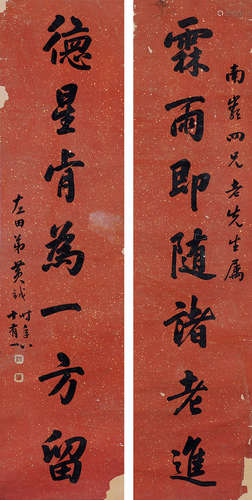 南巖四兄老先生属
霖雨即随諸老進
德星肯為一方留
左田弟黄钺時年八十有一